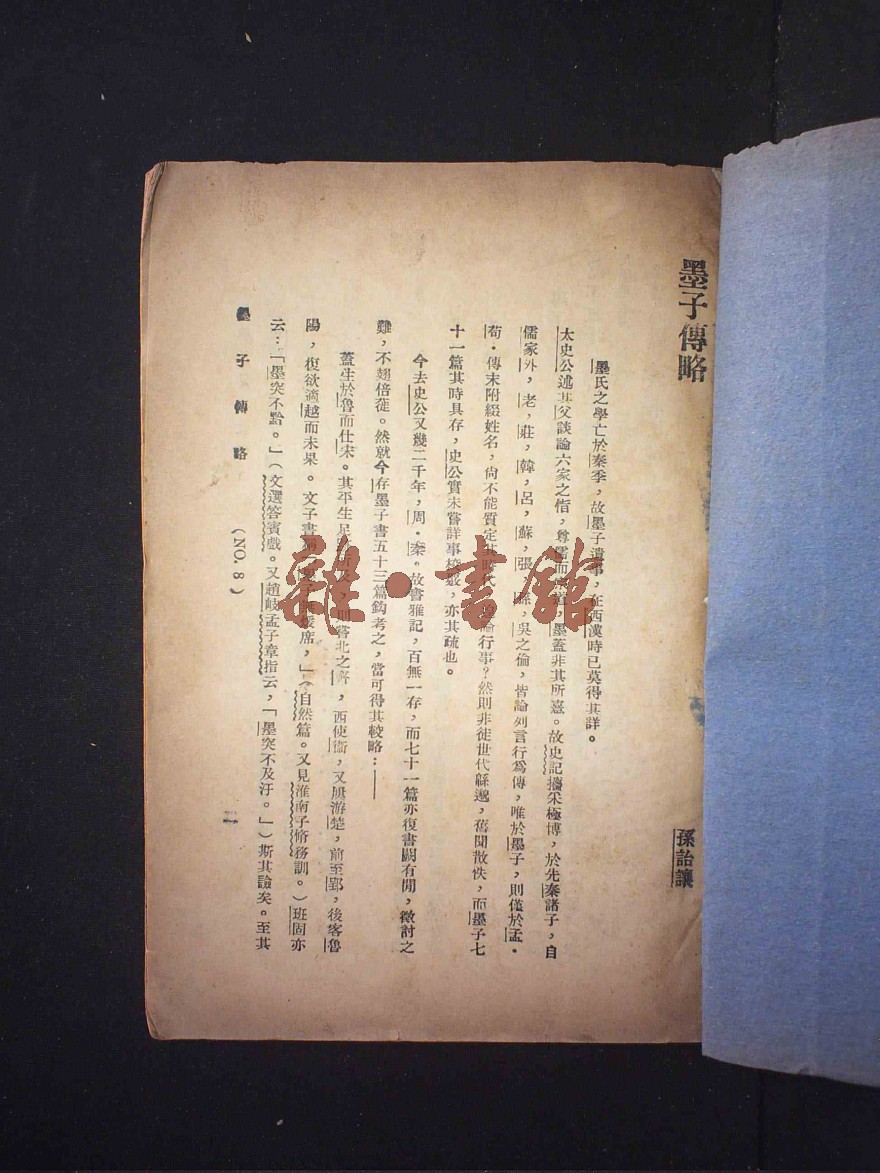 墨子傳略
孫詒讓
墨氏之學亡於秦季,故墨子遺事,在西漢時已莫得其詳。
太史公述其父談論六家之恉,尊儒而崇道,墨蓋非其所憙。故史記攟采極博,於先秦諸子,自
儒家外,老,莊,韓,呂,蘇,張,孫,吳之倫,皆論列言行爲傳,唯於墨子,則僅於孟·
荀·傳末附綴姓名,尙不能質定其時代,遑論行事?然則非徒世代緜邈,舊聞散佚,而墨子七
十一篇其時具存,史公實未嘗詳事校覈,亦其疏也。
今去史公又幾二千年,周·秦。故書雅記,百無一存,而七十一篇亦復書闕有閒,徵討之
難,不翅倍蓰。然就今存墨子書五十三篇鈎考之,當可得其較略:——
蓋生於魯而仕宋。其平生足所,則嘗北之齊,西使衞,又屢游楚,前至郢,後客魯
陽,復欲適越而未果。文子書煖席,」(自然篇。又見淮南子脩務訓。)班固亦
云:「墨突不黔。」(文選答賓戲。又趙岐孟子章指云,「墨突不及汙。」)斯其諗矣。至其
墨子傳略 (NO. 8) 一
雜·書館